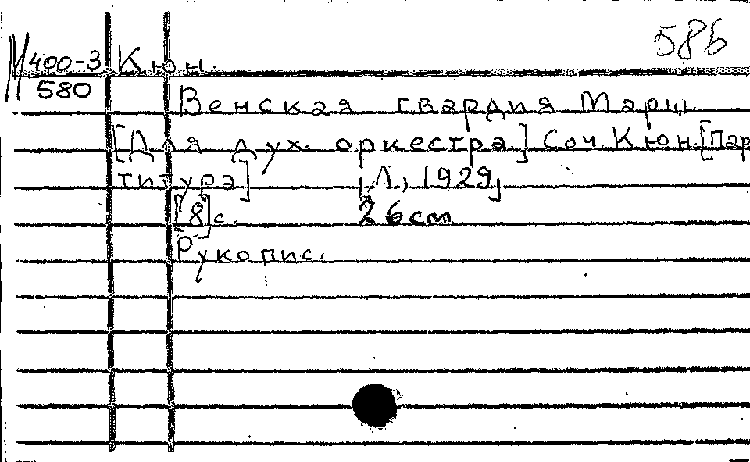 586
М400-3 Кюн.
580
Венская гвардия Марш
[Для дух. оркестра] Соч. Кюн. [Пар
титура] [Л., 1929]
[8] с. 26 cm
Рукопис.